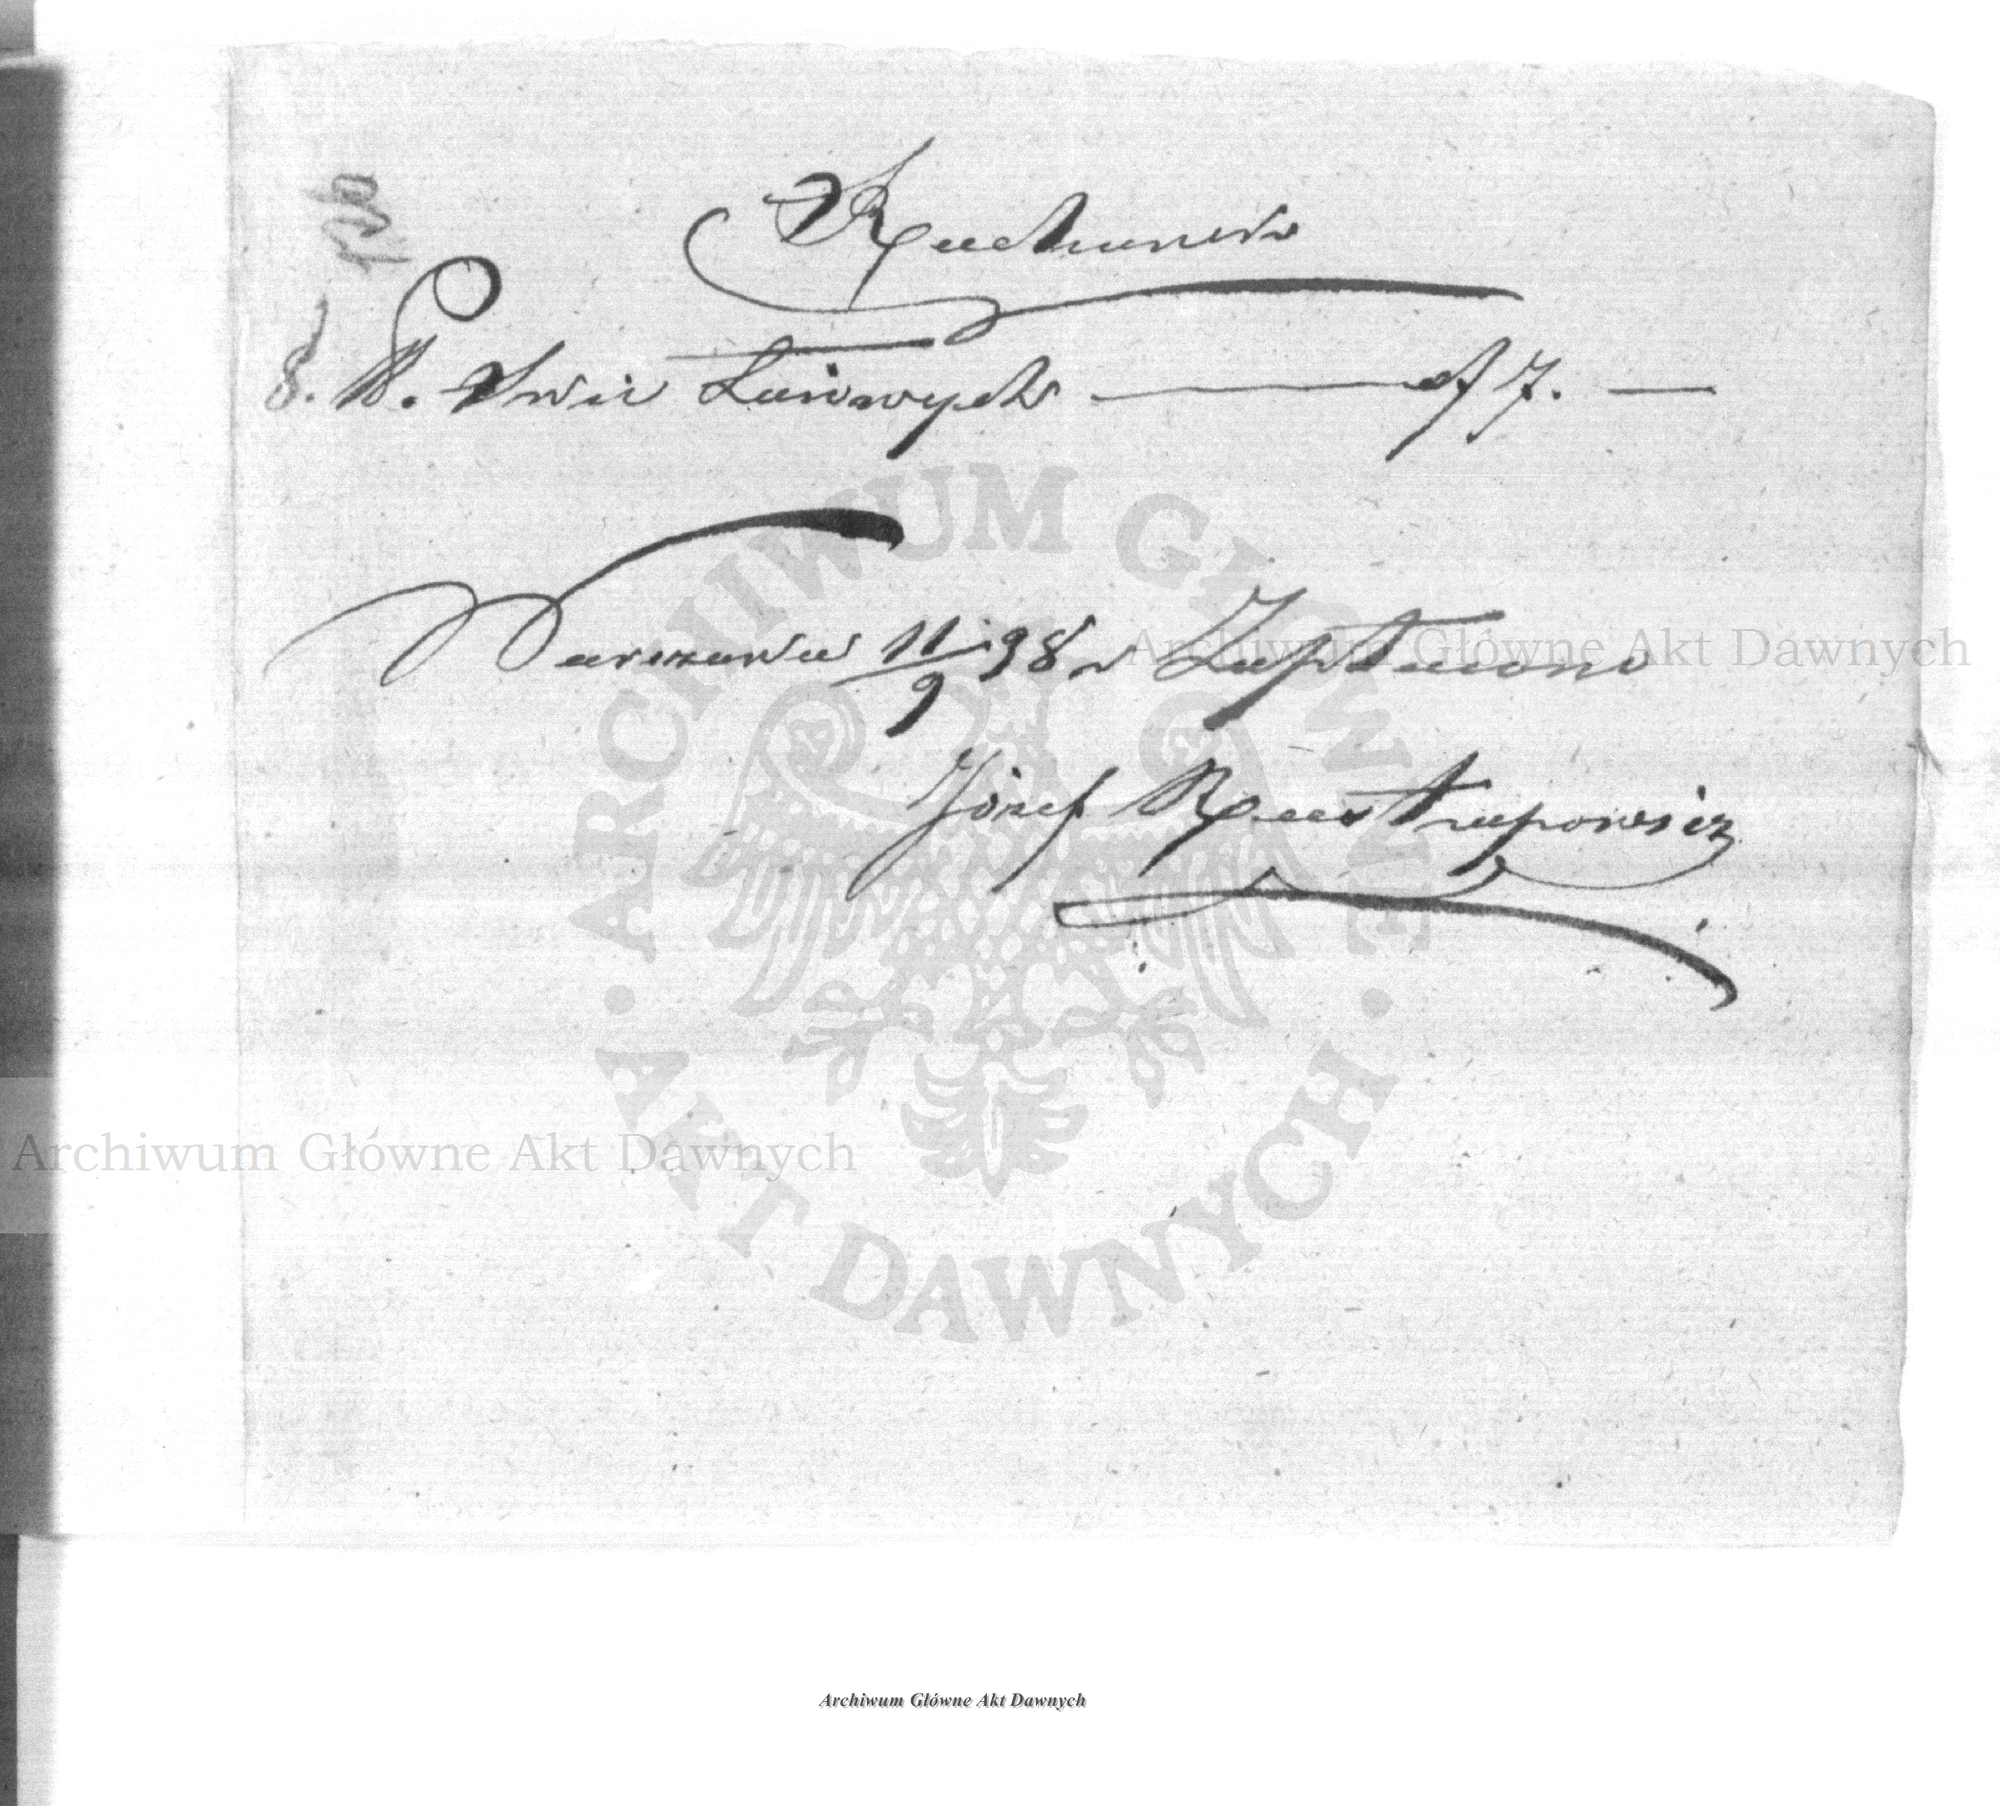 Rachunek
8. ℔. Swic Łaiowych — zł 7. —
Warszawa 11/9 38 r Zapłacono
Józef Rustrapowicz
ARCHIWUM GŁÓWNE · AKT DAWNYCH ·
Archiwum Główne Akt Dawnych
Archiwum Główne Akt Dawnych
Archiwum Główne Akt Dawnych